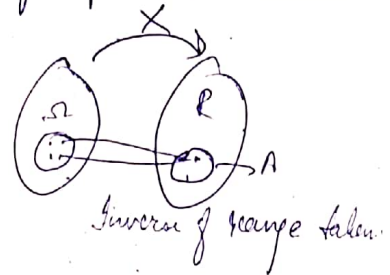 X
Ω
R
A
Inverse of range taken.